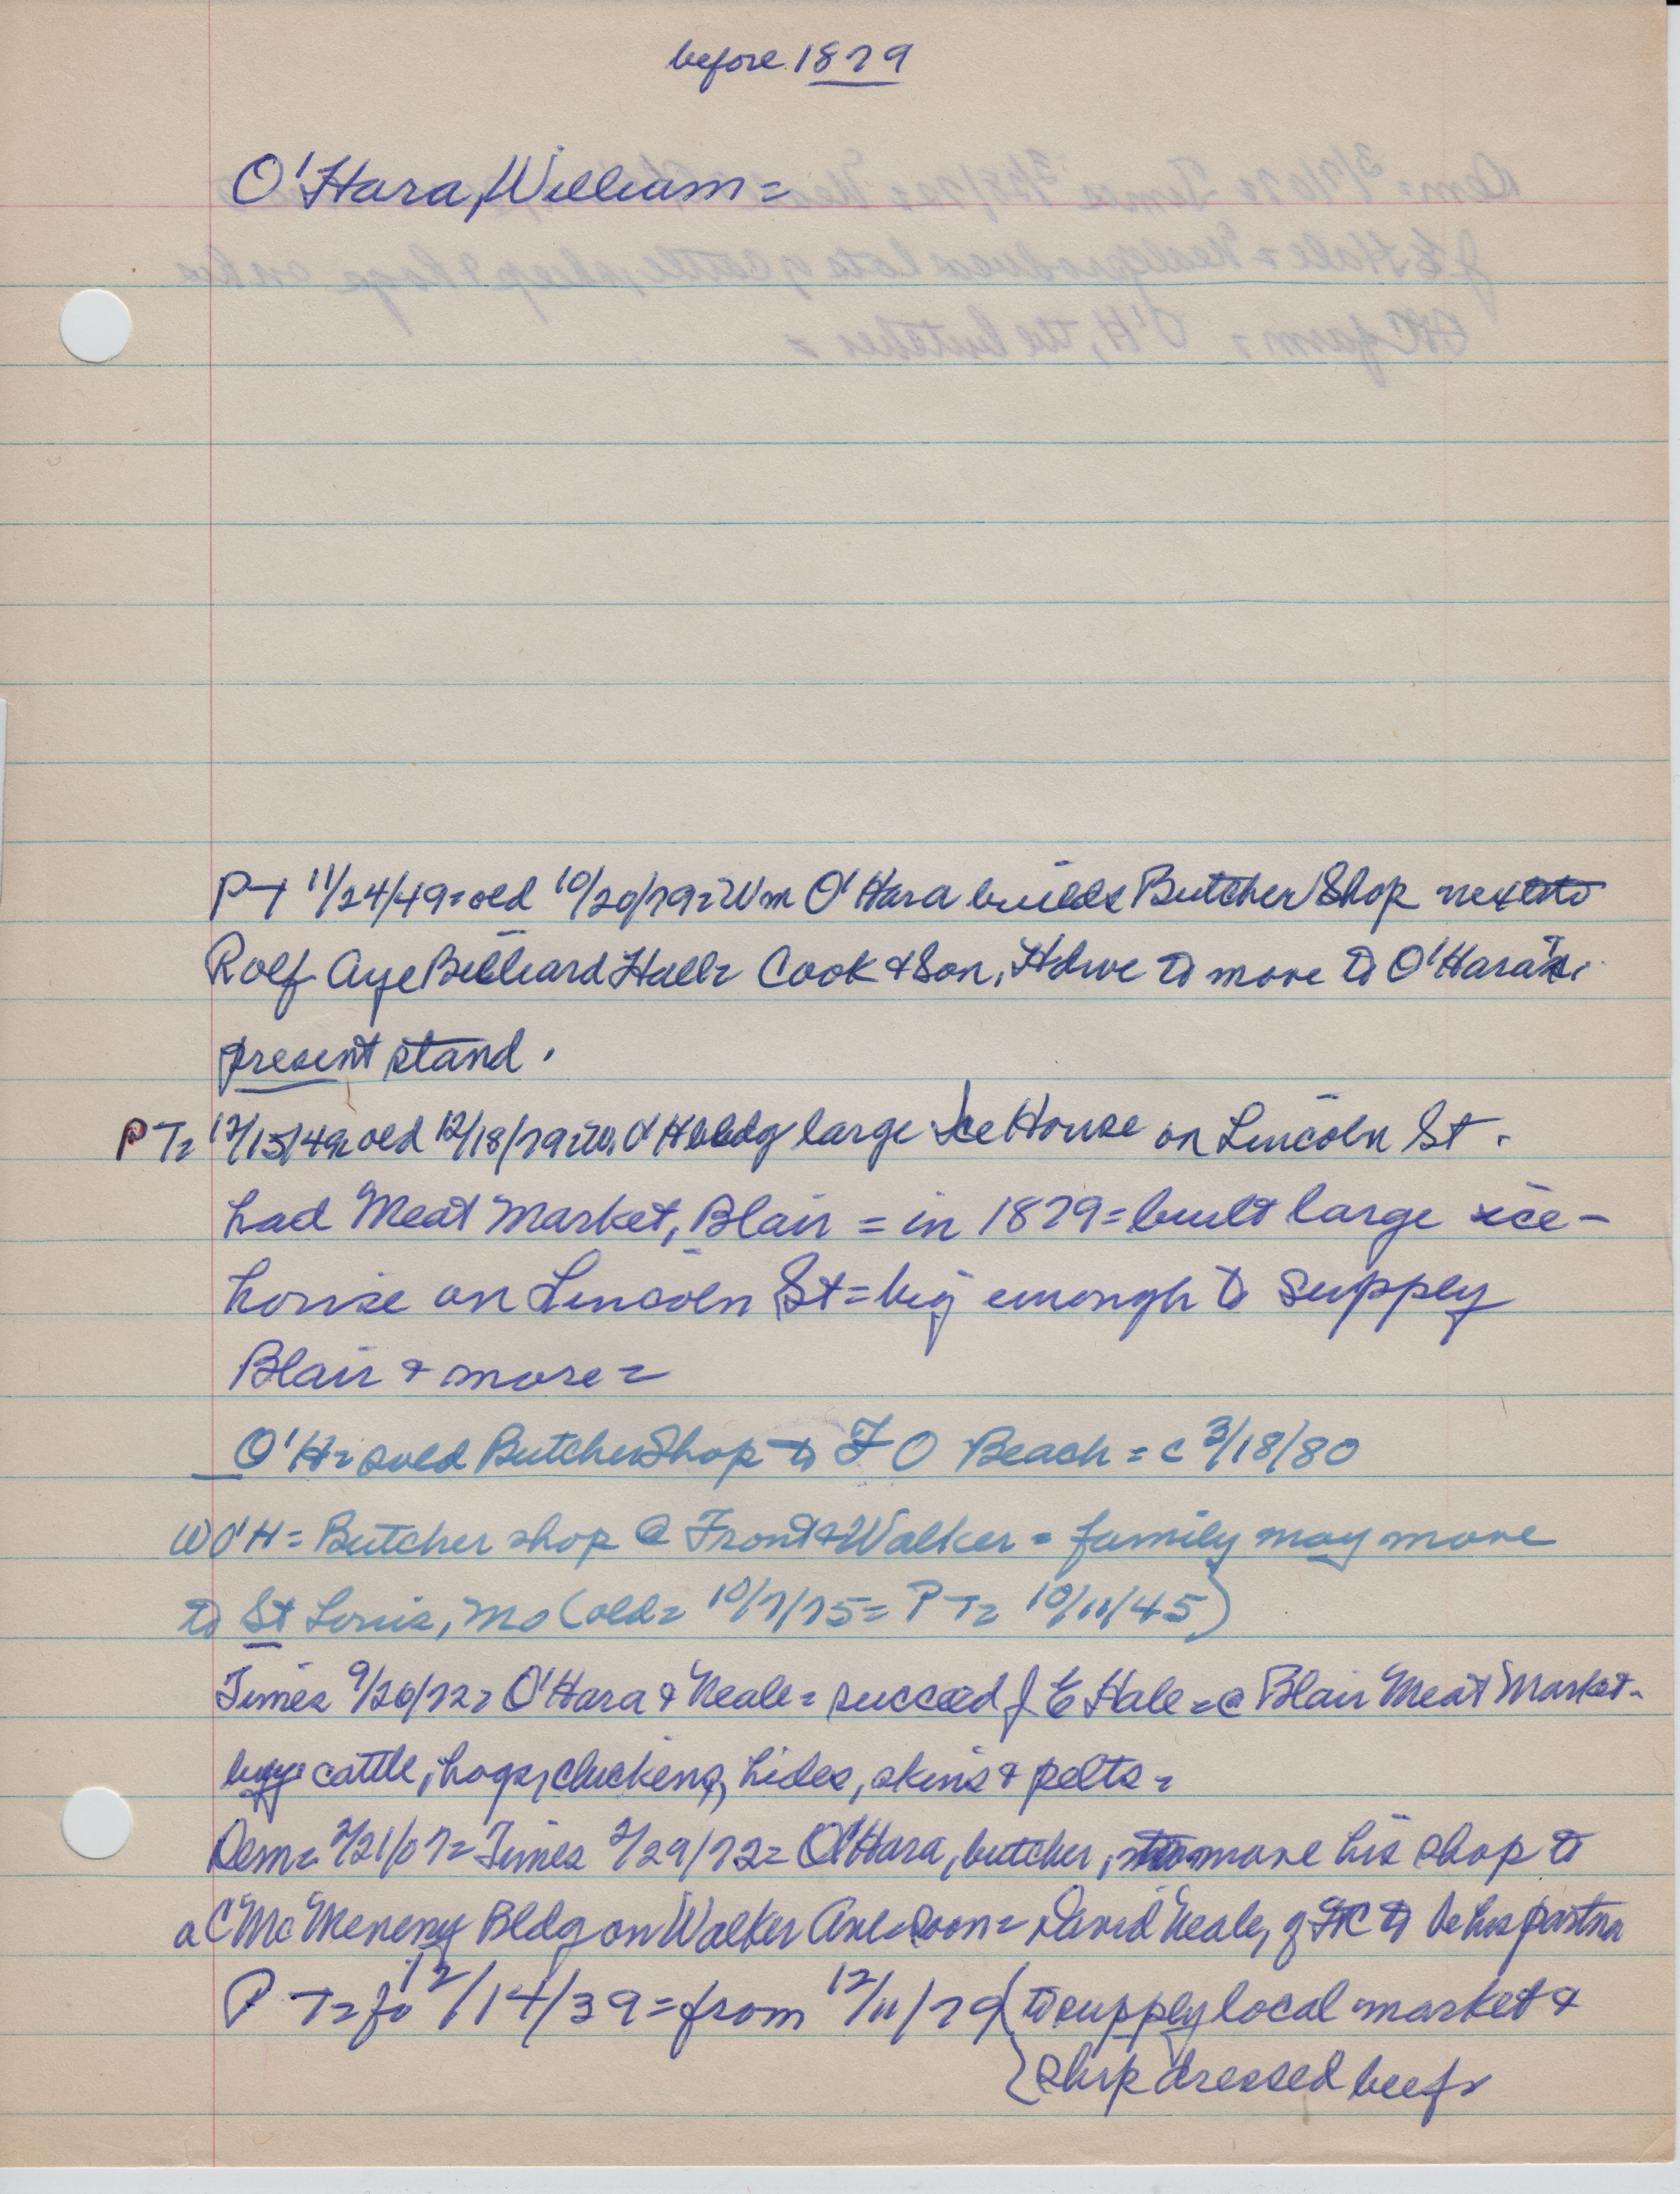 before 1879
O'Hara, William =
PT 11/24/49 = old 10/20/79 = Wm O'Hara builds Butcher Shop next to
Rolf Aye Billiard Hall = Cook & Son, Hdwe to move to O'Hara's
present stand.
PT = 12/15/49 = old 12/18/79 = W. O'H bldg large Ice House on Lincoln St.
had Meat Market, Blair = in 1879 = built large ice-
house on Lincoln St = big enough to supply
Blair & more =
O'H = sold Butcher Shop to F O Beach = c 3/18/80
W O'H = Butcher shop @ Front & Walker = family may move
to St Louis, Mo (old = 10/7/75 = PT = 10/11/45)
Times 9/20/72 = O'Hara & Neale = succeed J E Hale = @ Blair Meat Market -
buy cattle, hogs, chickens, hides, skins & pelts =
Dem = 2/21/07 = Times 2/29/72 = O'Hara, butcher, to move his shop to
a C McMenemy Bldg on Walker Ave soon = David Neale, of FtC to be his partner
PT = fr 12/14/39 = from 12/11/79 ( to supply local market &
{ ship dressed beef =